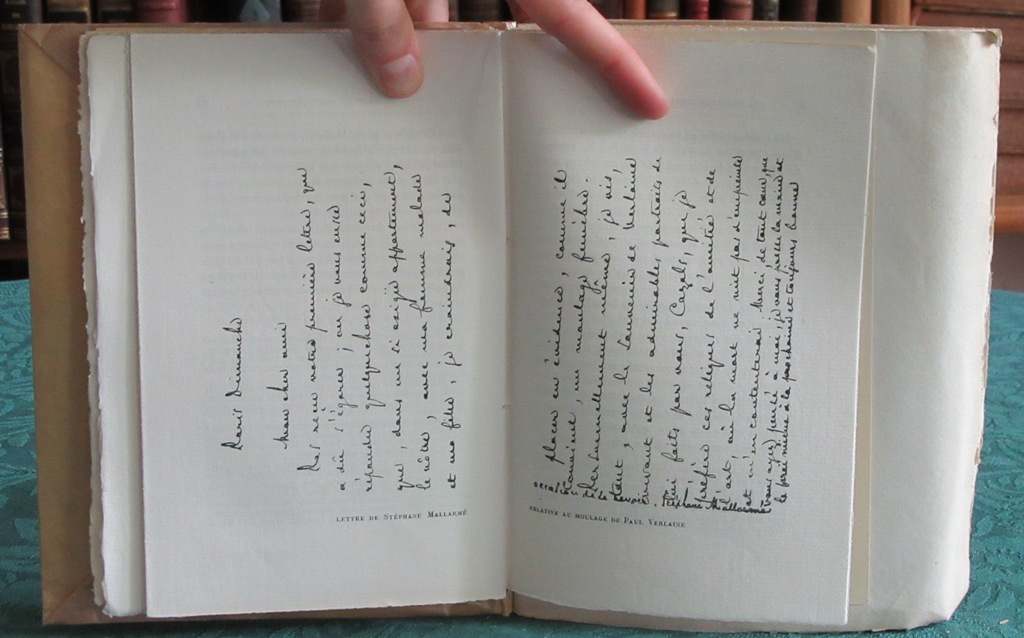 Paris Dimanche
Mon cher ami
Pas reçu votre première lettre, qui
a dû s'égarer ; ou je vous eusse
répondu quelque chose comme ceci,
que, dans un si exigu appartement,
le nôtre, avec une femme malade
et ma fille, je craindrais, de
LETTRE DE STÉPHANE MALLARMÉ
placer en évidence, comme il
convient, un moulage funèbre.
Personnellement même, je vis,
tant, avec le souvenir de Verlaine
vivant et les admirables portraits de
lui faits par vous, Cazals, que je
préfère ces reliques de l'amitié et de
l'art, où la mort ne mit pas d'empreinte
et m'en contenterai. Merci de tout cœur, que
vous ayez pensé à moi; je vous presse la main et
le prie même à la prochaine et toujours bonne
occasion de le revoir. Stéphane Mallarmé
RELATIVE AU MOULAGE DE PAUL VERLAINE